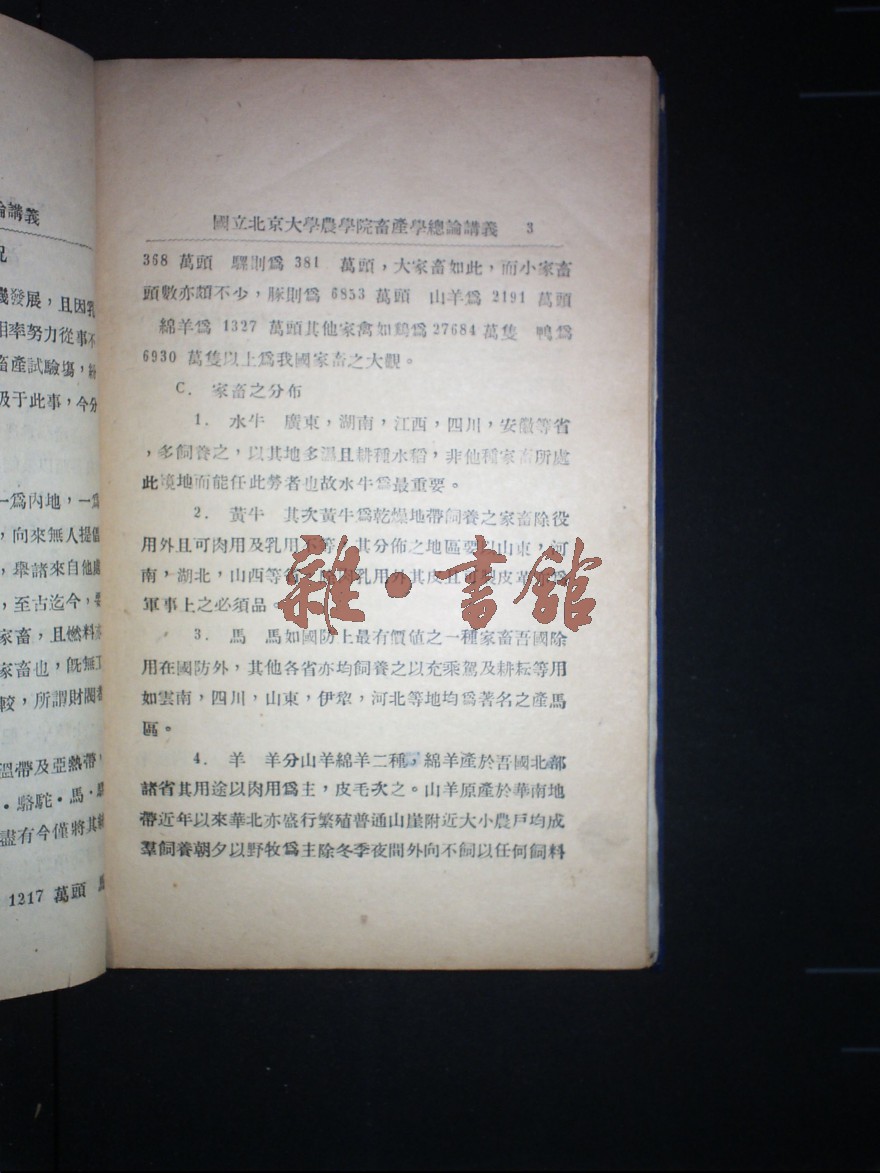 論講義
況
幾發展，且因乳
相率努力從事不
畜產試驗場，紛
及于此事，今分
一爲內地，一爲
，向來無人提倡
，舉諸來自他處
，至古迄今，
家畜，且燃料亦
家畜也，旣無工
較，所謂財閥者
溫帶及亞熱帶，
・駱駝・馬・
盡有今僅將其
1217 萬頭
國立北京大學農學院畜產學總論講義 3
368 萬頭 騾則爲 381 萬頭，大家畜如此，而小家畜
頭數亦頗不少，豚則爲 6853 萬頭 山羊爲 2191 萬頭
綿羊爲 1327 萬頭其他家禽如鷄爲 27684 萬隻 鴨爲
6930 萬隻以上爲我國家畜之大觀。
C. 家畜之分布
1. 水牛 廣東，湖南，江西，四川，安徽等省
，多飼養之，以其地多濕且耕種水稻，非他種家畜所處
此境地而能任此勞者也故水牛爲最重要。
2. 黃牛 其次黃牛爲乾燥地帶飼養之家畜除役
用外且可肉用及乳用不等，其分佈之地區要以山東，河
南，湖北，山西等省，除肉乳用外其皮且可製皮革亦爲
軍事上之必須品。
3. 馬 馬如國防上最有價値之一種家畜吾國除
用在國防外，其他各省亦均飼養之以充乘駕及耕耘等用
如雲南，四川，山東，伊犂，河北等地均爲著名之產馬
區。
4. 羊 羊分山羊綿羊二種，綿羊產於吾國北部
諸省其用途以肉用爲主，皮毛次之。山羊原產於華南地
帶近年以來華北亦盛行繁殖普通山崖附近大小農戶均成
羣飼養朝夕以野牧爲主除冬季夜間外向不飼以任何飼料
雜・書館